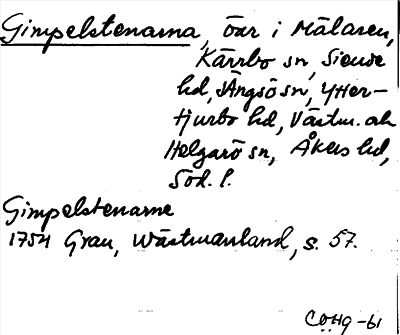 Gimpelstenarna, öar i Mälaren,
Kärrbo sn, Siende
hd, Ängsö sn, Ytter-
tjurbo hd, Västm. och
Helgarö sn, Åkers hd,
Söd. l.
Gimpelstenarne
1754 Grau, Wästmanland, s. 57.
COHg -61